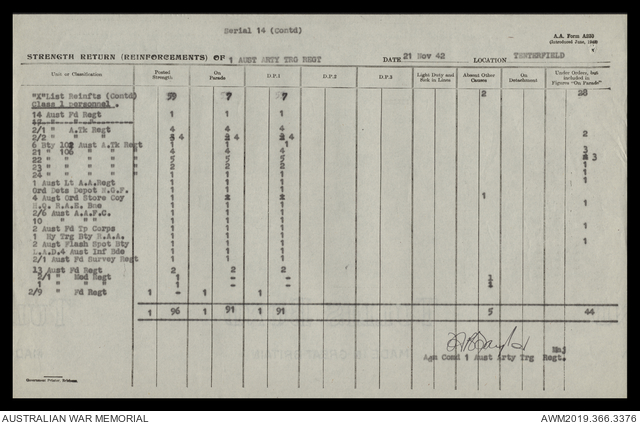 Serial 14 (Contd)
A.A. Form A830
(Introduced June, 1940)
STRENGTH RETURN (REINFORCEMENTS) OF 1 AUST ARTY TRG REGT DATE 21 Nov 42 LOCATION TENTERFIELD
Unit or Classification Posted Strength On Parade D.P.1 D.P.2 D.P.3 Light Duty and Sick in Lines Absent Other Causes On Detachment Under Orders, but included in Figures "On Parade"
"X"List Reinfts (Contd) 59 7 7 2 28
Class 1 personnel.
14 Aust Fd Regt 1 1 1
17 " " "
2/1 " A.Tk Regt 4 4 4
2/2 " " " 4 4 4 2
6 Bty 102 Aust A.Tk Regt 1 1 1
21 " 106 " " " 4 4 4 3
22 " " " " " 5 5 5 3
23 " " " " " 2 2 2 1
24 " " " " " 1 1 1
1 Aust Lt A.A.Regt 1 1 1 1
Ord Dets Depot N.G.F. 1 1 1
4 Aust Ord Store Coy 1 2 2 1
H.Q. R.A.E. Bns 1 1 1 1
2/6 Aust A.A.F.C. 1 1 1
10 " " " 1 1 1
2 Aust Fd Tp Corps 1 1 1 1
1 My Trg Bty R.A.A. 1 1 1
2 Aust Flash Spot Bty 1 1 1 1
L.A.D.4 Aust Inf Bde 1 1 1
2/1 Aust Fd Survey Regt 1 1 1
13 Aust Fd Regt 2 2 2
2/1 " Med Regt 1 - - 1
1 " " " 1 - - 1
2/9 " Fd Regt 1 - 1 - 1 -
1 96 1 91 1 91 5 44
Maj
Agn Comd 1 Aust Arty Trg Regt.
Government Printer, Brisbane.
AUSTRALIAN WAR MEMORIAL AWM2019.366.3376